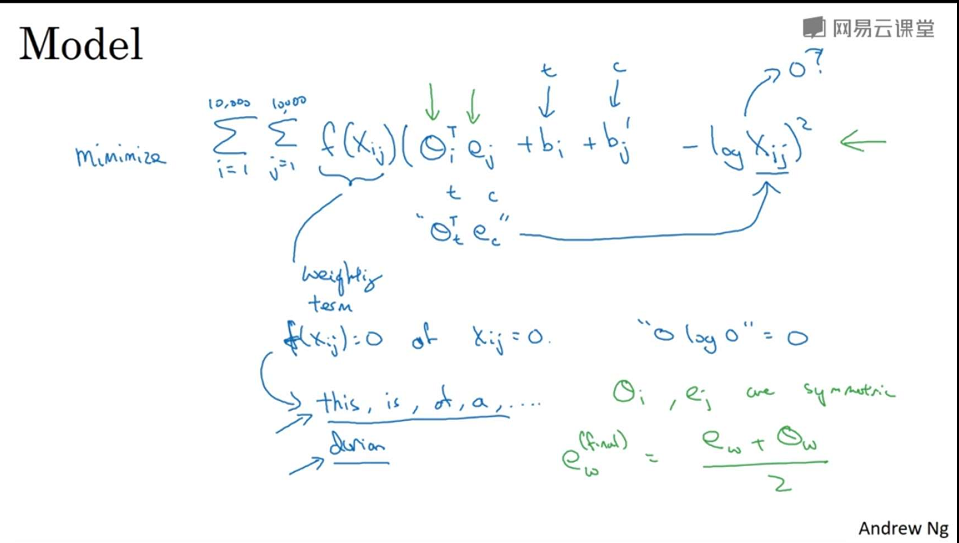 Model
网易云课堂
t c 0?
minimize 10,000 ∑ i=1 10,000 ∑ j=1 f(Xij)(θiᵀ ej + bi + bj′ − log Xij)²
t c
"θtᵀ ec"
weighting
term
f(Xij)=0 if Xij=0. "0 log 0" = 0
this, is, of, a, ....
θi, ej are symmetric
durian
ew(final) = (ew + θw) / 2
Andrew Ng